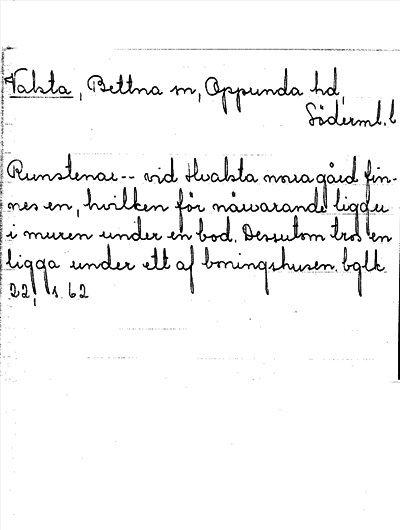 Valsta, Bettna sn, Oppunda hd,
Söderml. l
Runstenar -- vid Hvalsta norra gård fin-
nes en, hvilken för närvarande ligger
i muren under en bod. Dessutom tros en
ligga under ett af boningshusen. bglk
22, s. 62